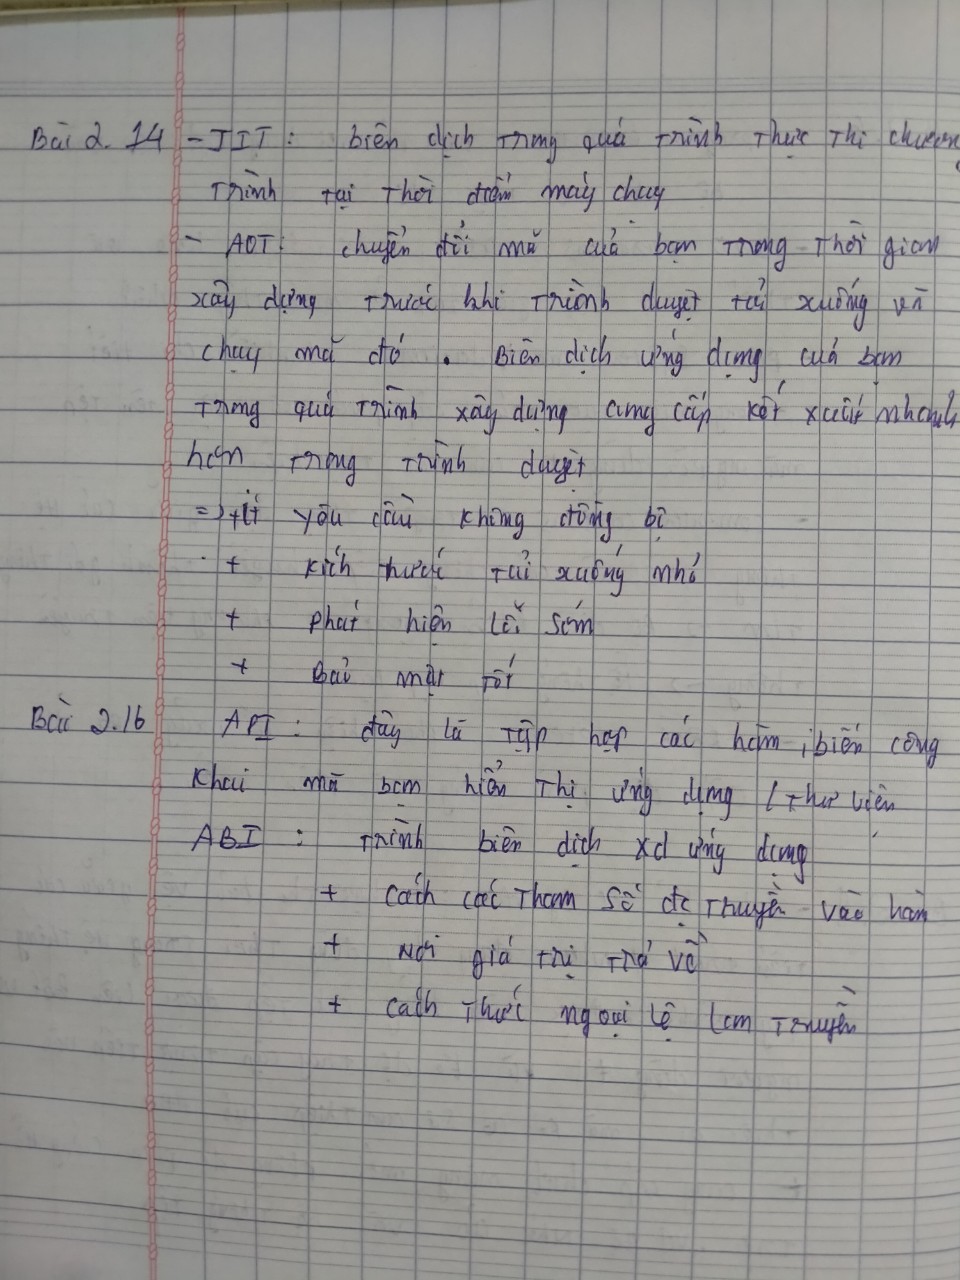 Bài 2.14 - JIT: biên dịch trong quá trình thực thi chương
trình tại thời điểm máy chạy
- AOT: chuyển đổi mã của bạn trong thời gian
xây dựng trước khi trình duyệt tải xuống và
chạy mã đó. Biên dịch ứng dụng của bạn
trong quá trình xây dựng cung cấp kết xuất nhanh
hơn trong trình duyệt
=> + ít yêu cầu không đồng bộ
+ kích thước tải xuống nhỏ
+ phát hiện lỗi sớm
+ Bảo mật tốt
Bài 2.16 API: đây là tập hợp các hàm, biến công
khai mà bạn hiển thị ứng dụng / thư viện
ABI: trình biên dịch xd ứng dụng
+ cách các tham số đc truyền vào hàm
+ Nơi giá trị trả về
+ cách thức ngoại lệ lan truyền